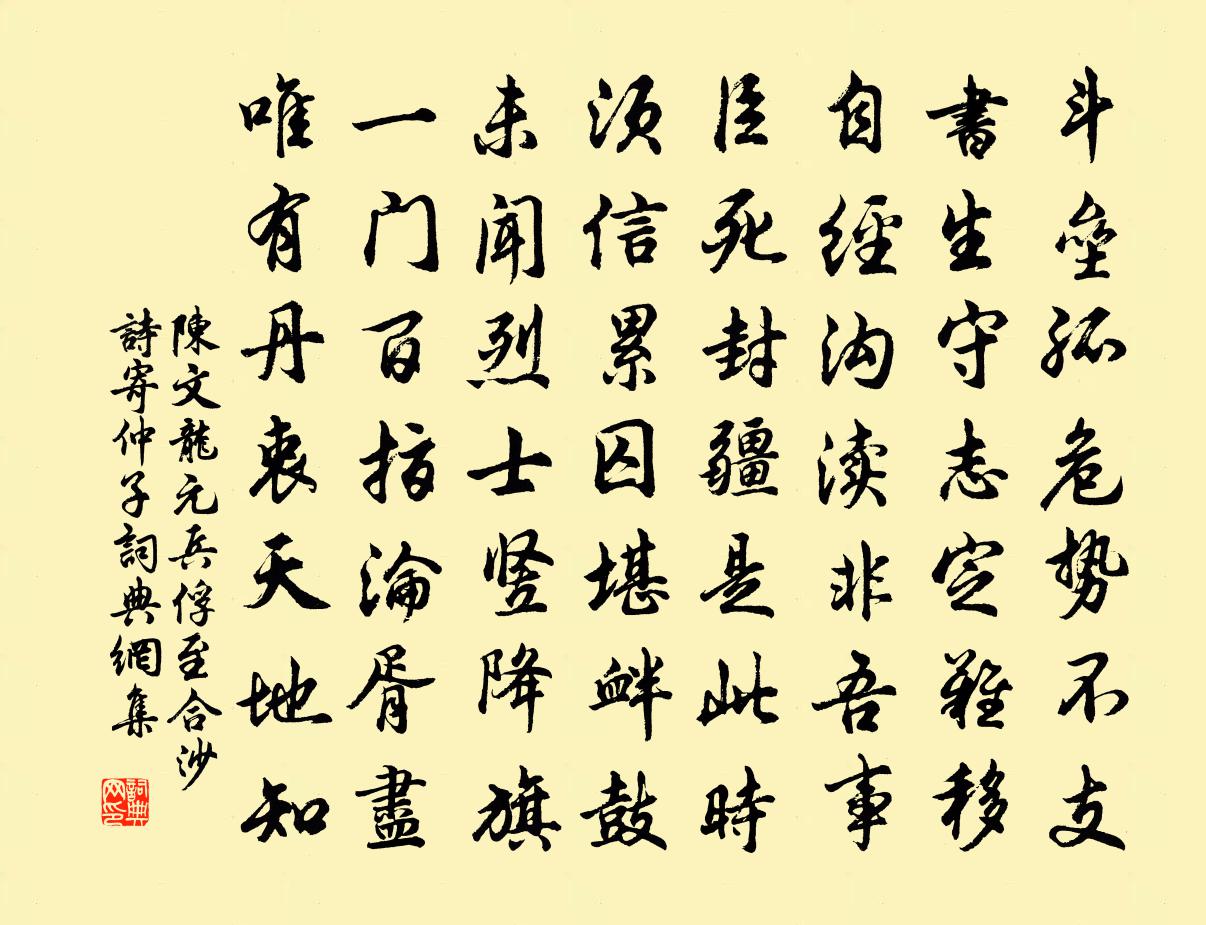 斗壘孤危勢不支
書生守志定難移
自經沟渎非吾事
臣死封疆是此時
須信累囚堪衅鼓
未聞烈士竖降旗
一门百指淪胥盡
唯有丹衷天地知
陳文龍元兵俘至合沙
詩寄仲子詞典網集
詞典网印